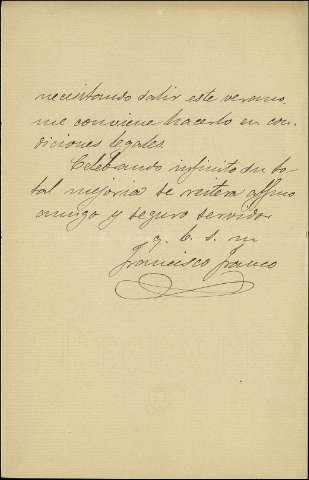 necesitando salir este verano,
me conviene hacerlo en con-
diciones legales.
Celebrando infinito su to-
tal mejoria se reitera affmo
amigo y seguro servidor
q. b. s. m
Francisco Franco